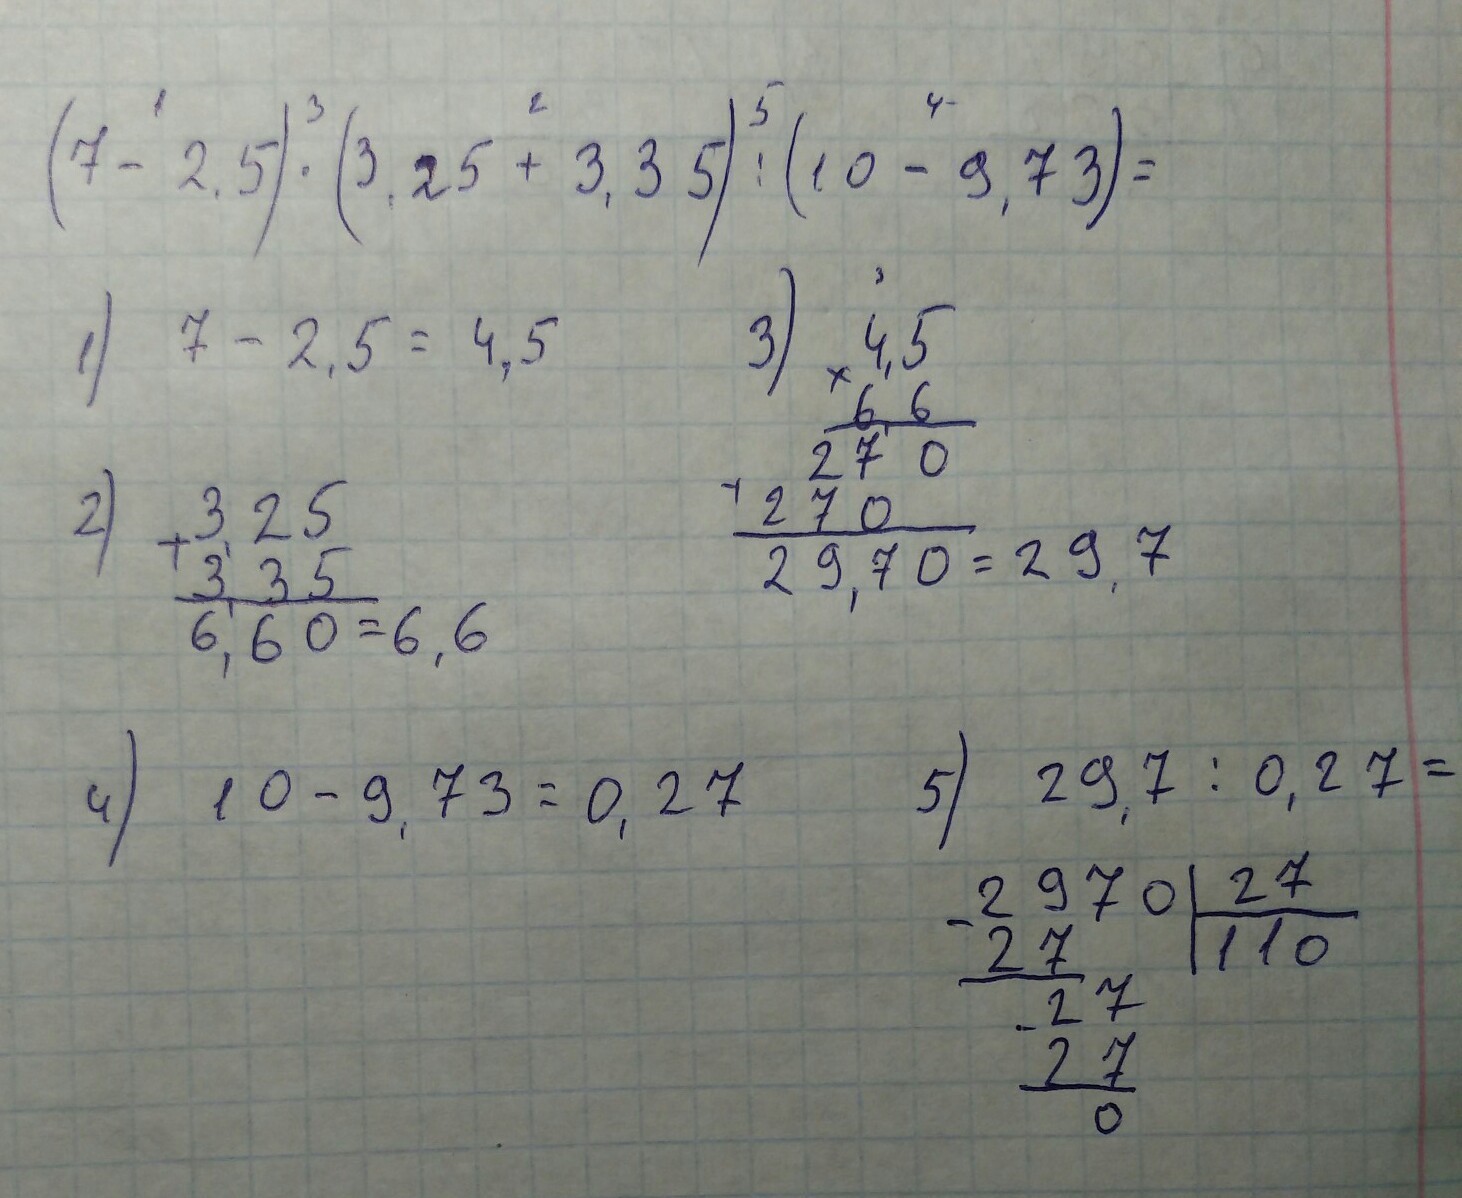 1 3 2 5 4
(7 - 2,5) · (3,25 + 3,35) : (10 - 9,73) =
1) 7 - 2,5 = 4,5
2) + 3,25
3,35
6,60 = 6,6
3
3) × 4,5
6,6
270
+ 270
29,70 = 29,7
4) 10 - 9,73 = 0,27
5) 29,7 : 0,27 =
- 2970 | 27
27 | 110
- 27
27
0